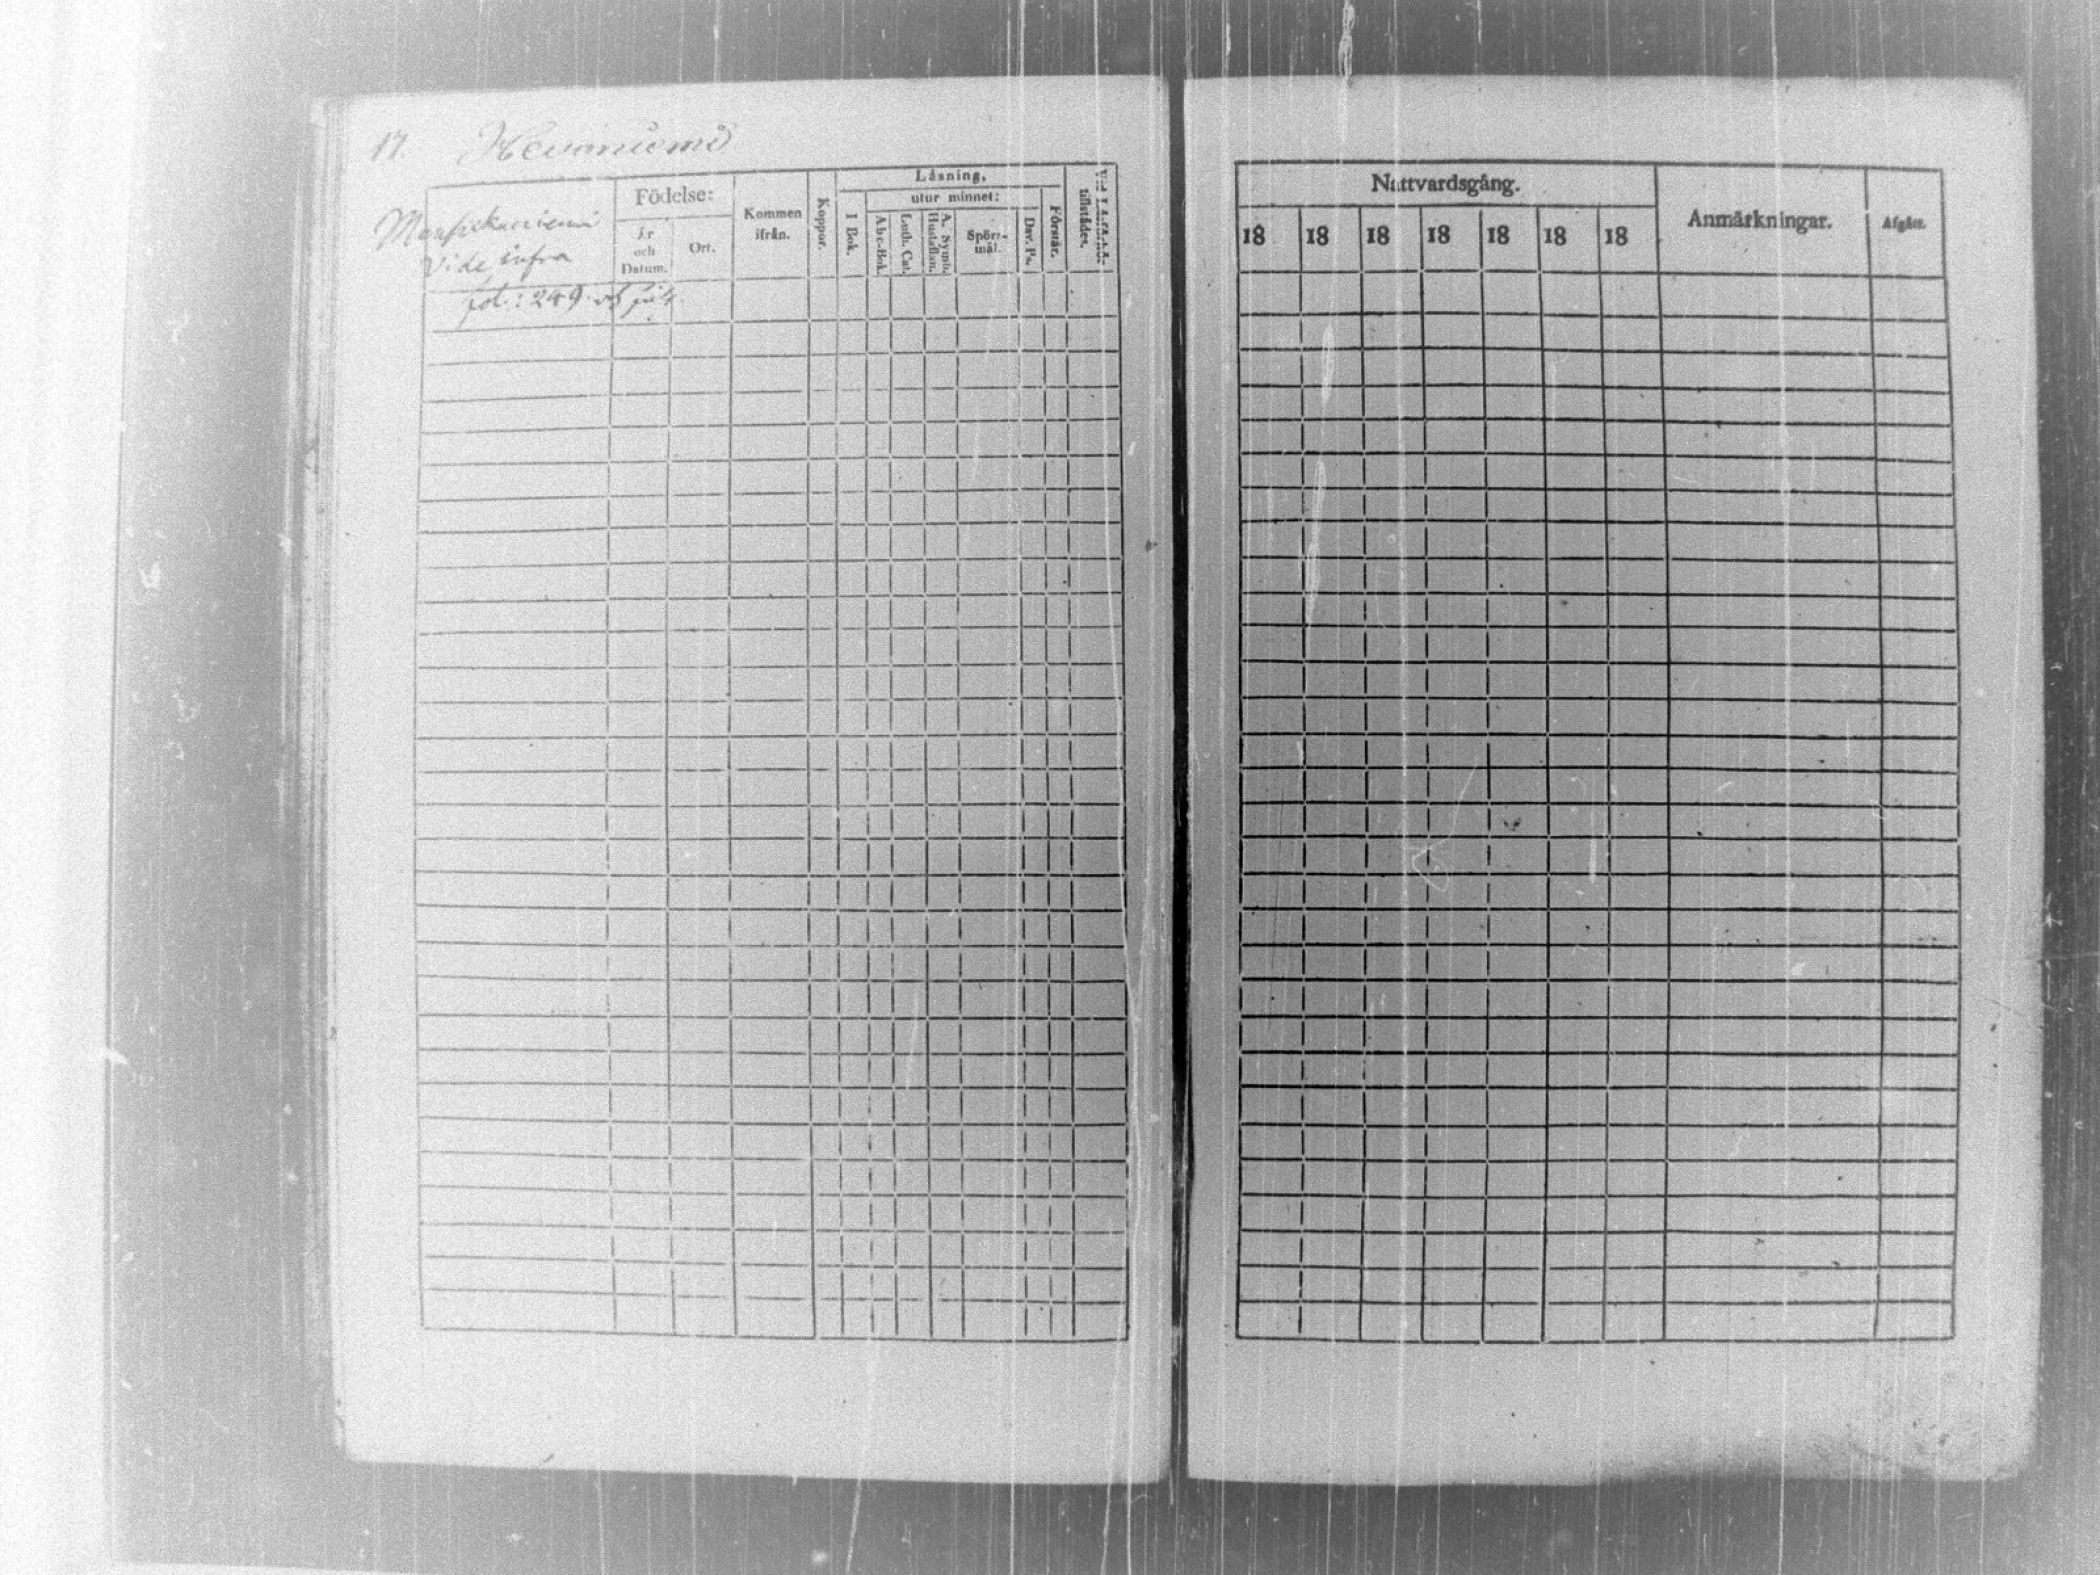 17. Hevoniemi
Mansickaniemi
vide infra
fol: 249.
Födelse:
År
och
Datum.
Ort.
Kommen
ifrån.
Koppor.
Läsning,
utur minnet:
I Bok.
Abc-Bok.
Luth. Cat.
A. Symb.
Hustaflan.
Spörs-
mål.
Dav. Ps.
Förstår.
tillstädes.
Nattvardsgång.
18 18 18 18 18 18 18
Anmärkningar.
Afgått.